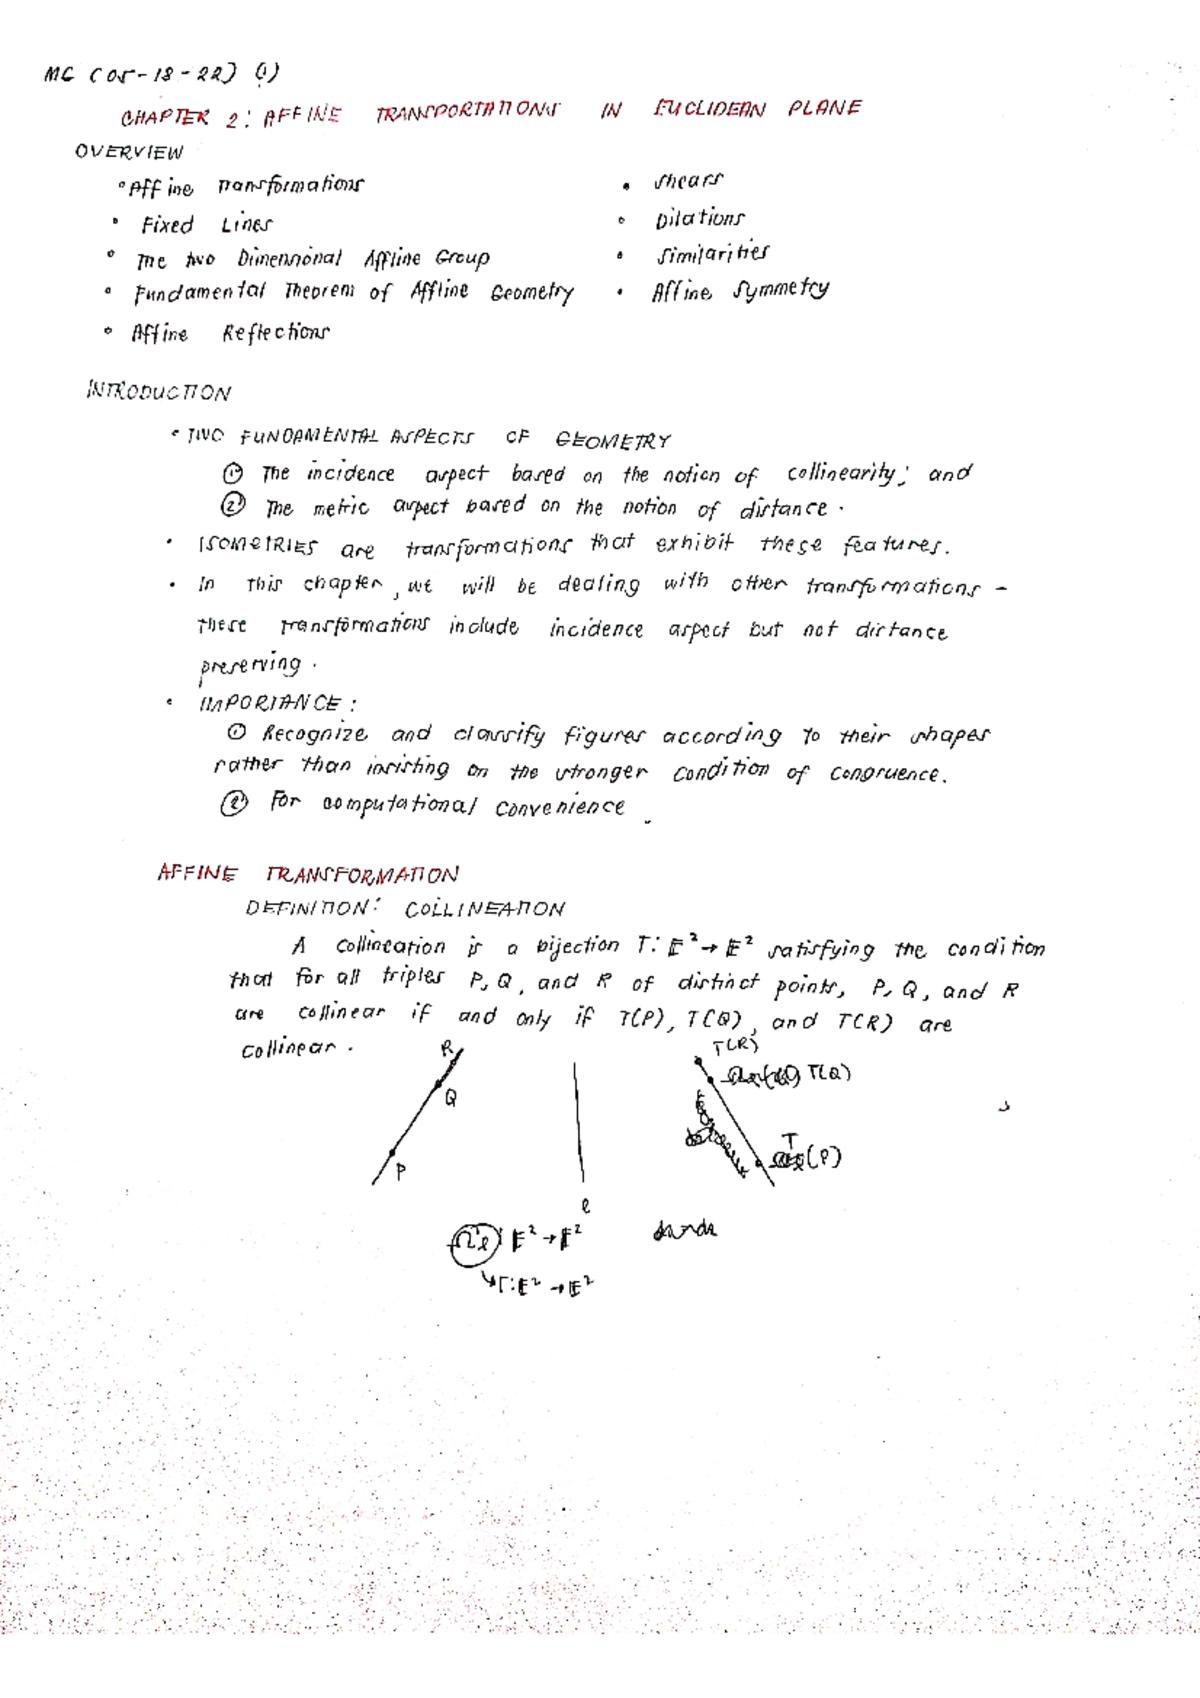 MG (05-18-22) (1)
CHAPTER 2: AFFINE TRANSPORTATIONS IN EUCLIDEAN PLANE
OVERVIEW
• Affine Transformations
• Shears
• Fixed Lines
• Dilations
• The two Dimensional Affline Group
• Similarities
• Fundamental Theorem of Affline Geometry
• Affine Symmetry
• Affine Reflections
INTRODUCTION
• TWO FUNDAMENTAL ASPECTS OF GEOMETRY
① The incidence aspect based on the notion of collinearity; and
② The metric aspect based on the notion of distance.
• ISOMETRIES are transformations that exhibit these features.
• In this chapter, we will be dealing with other transformations -
these transformations include incidence aspect but not distance
preserving.
• IMPORTANCE:
① Recognize and classify figures according to their shapes
rather than insisting on the stronger condition of congruence.
② For computational convenience.
AFFINE TRANSFORMATION
DEFINITION: COLLINEATION
A collineation is a bijection T: E² → E² satisfying the condition
that for all triples P, Q, and R of distinct points, P, Q, and R
are collinear if and only if T(P), T(Q), and T(R) are
collinear.
R
T(R)
T(Q)
Q
T
P
(P)
l
Ωl: E² → E²
T: E² → E²